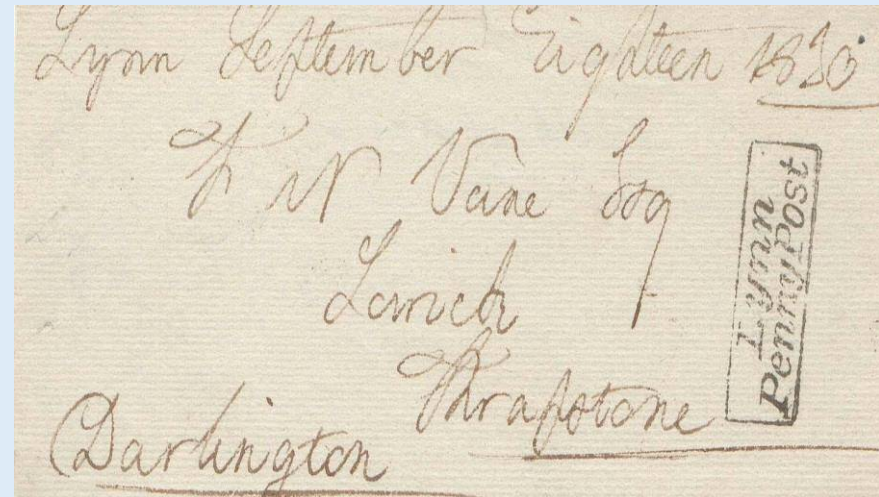 Lynn September Eighteen 1830
F W Vane Esq
Lowick
Thrapstone
Darlington
Lynn
Penny Post